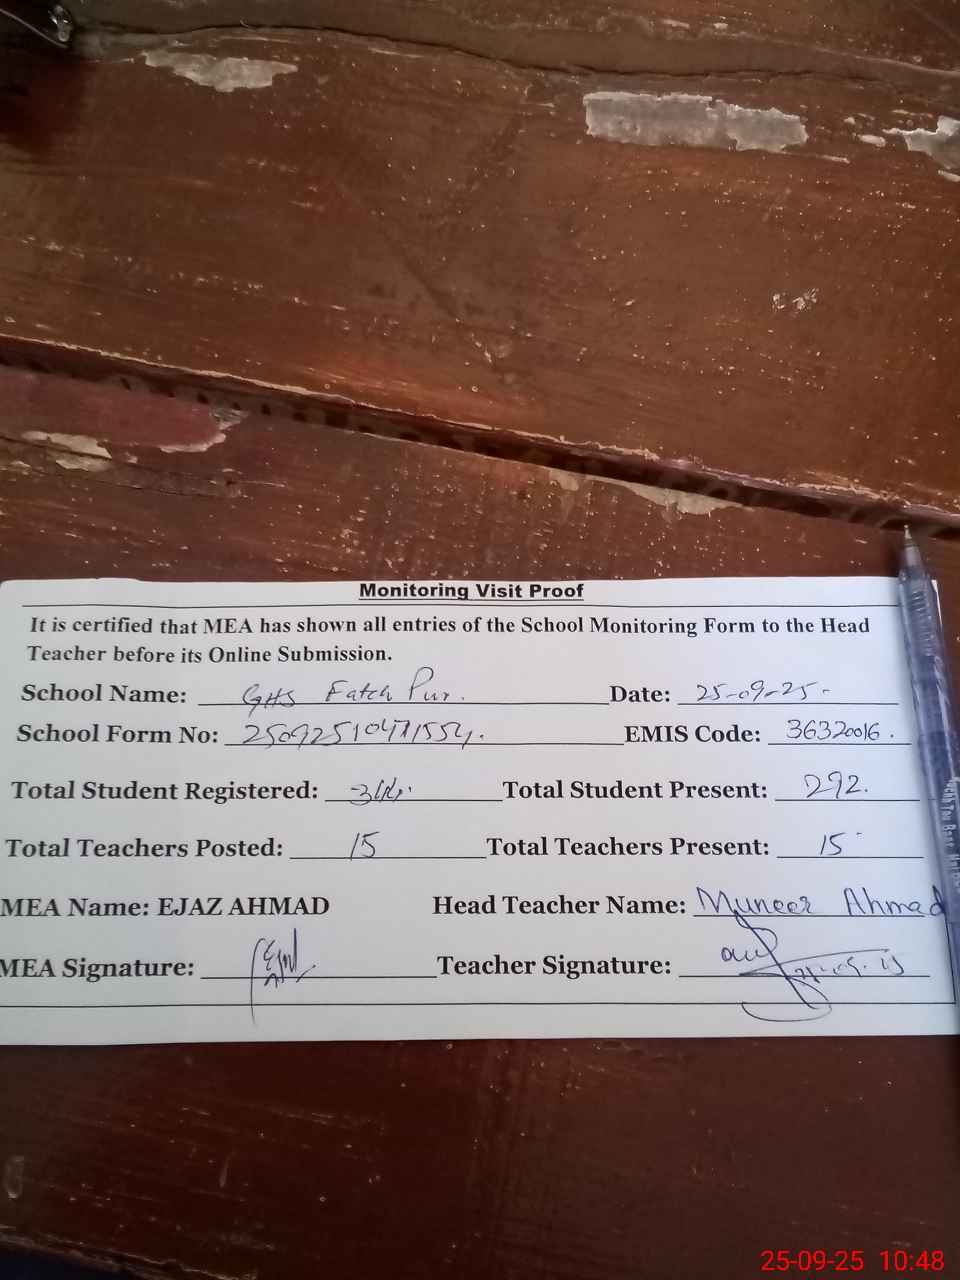 Monitoring Visit Proof
It is certified that MEA has shown all entries of the School Monitoring Form to the Head
Teacher before its Online Submission.
School Name: GHS Fateh Pur. Date: 25-09-25-
School Form No: EMIS Code: 36320016.
Total Student Registered: Total Student Present: 292.
Total Teachers Posted: 15 Total Teachers Present: 15
MEA Name: EJAZ AHMAD Head Teacher Name: Muneer Ahmad
MEA Signature: Teacher Signature:
25-09-25 10:48